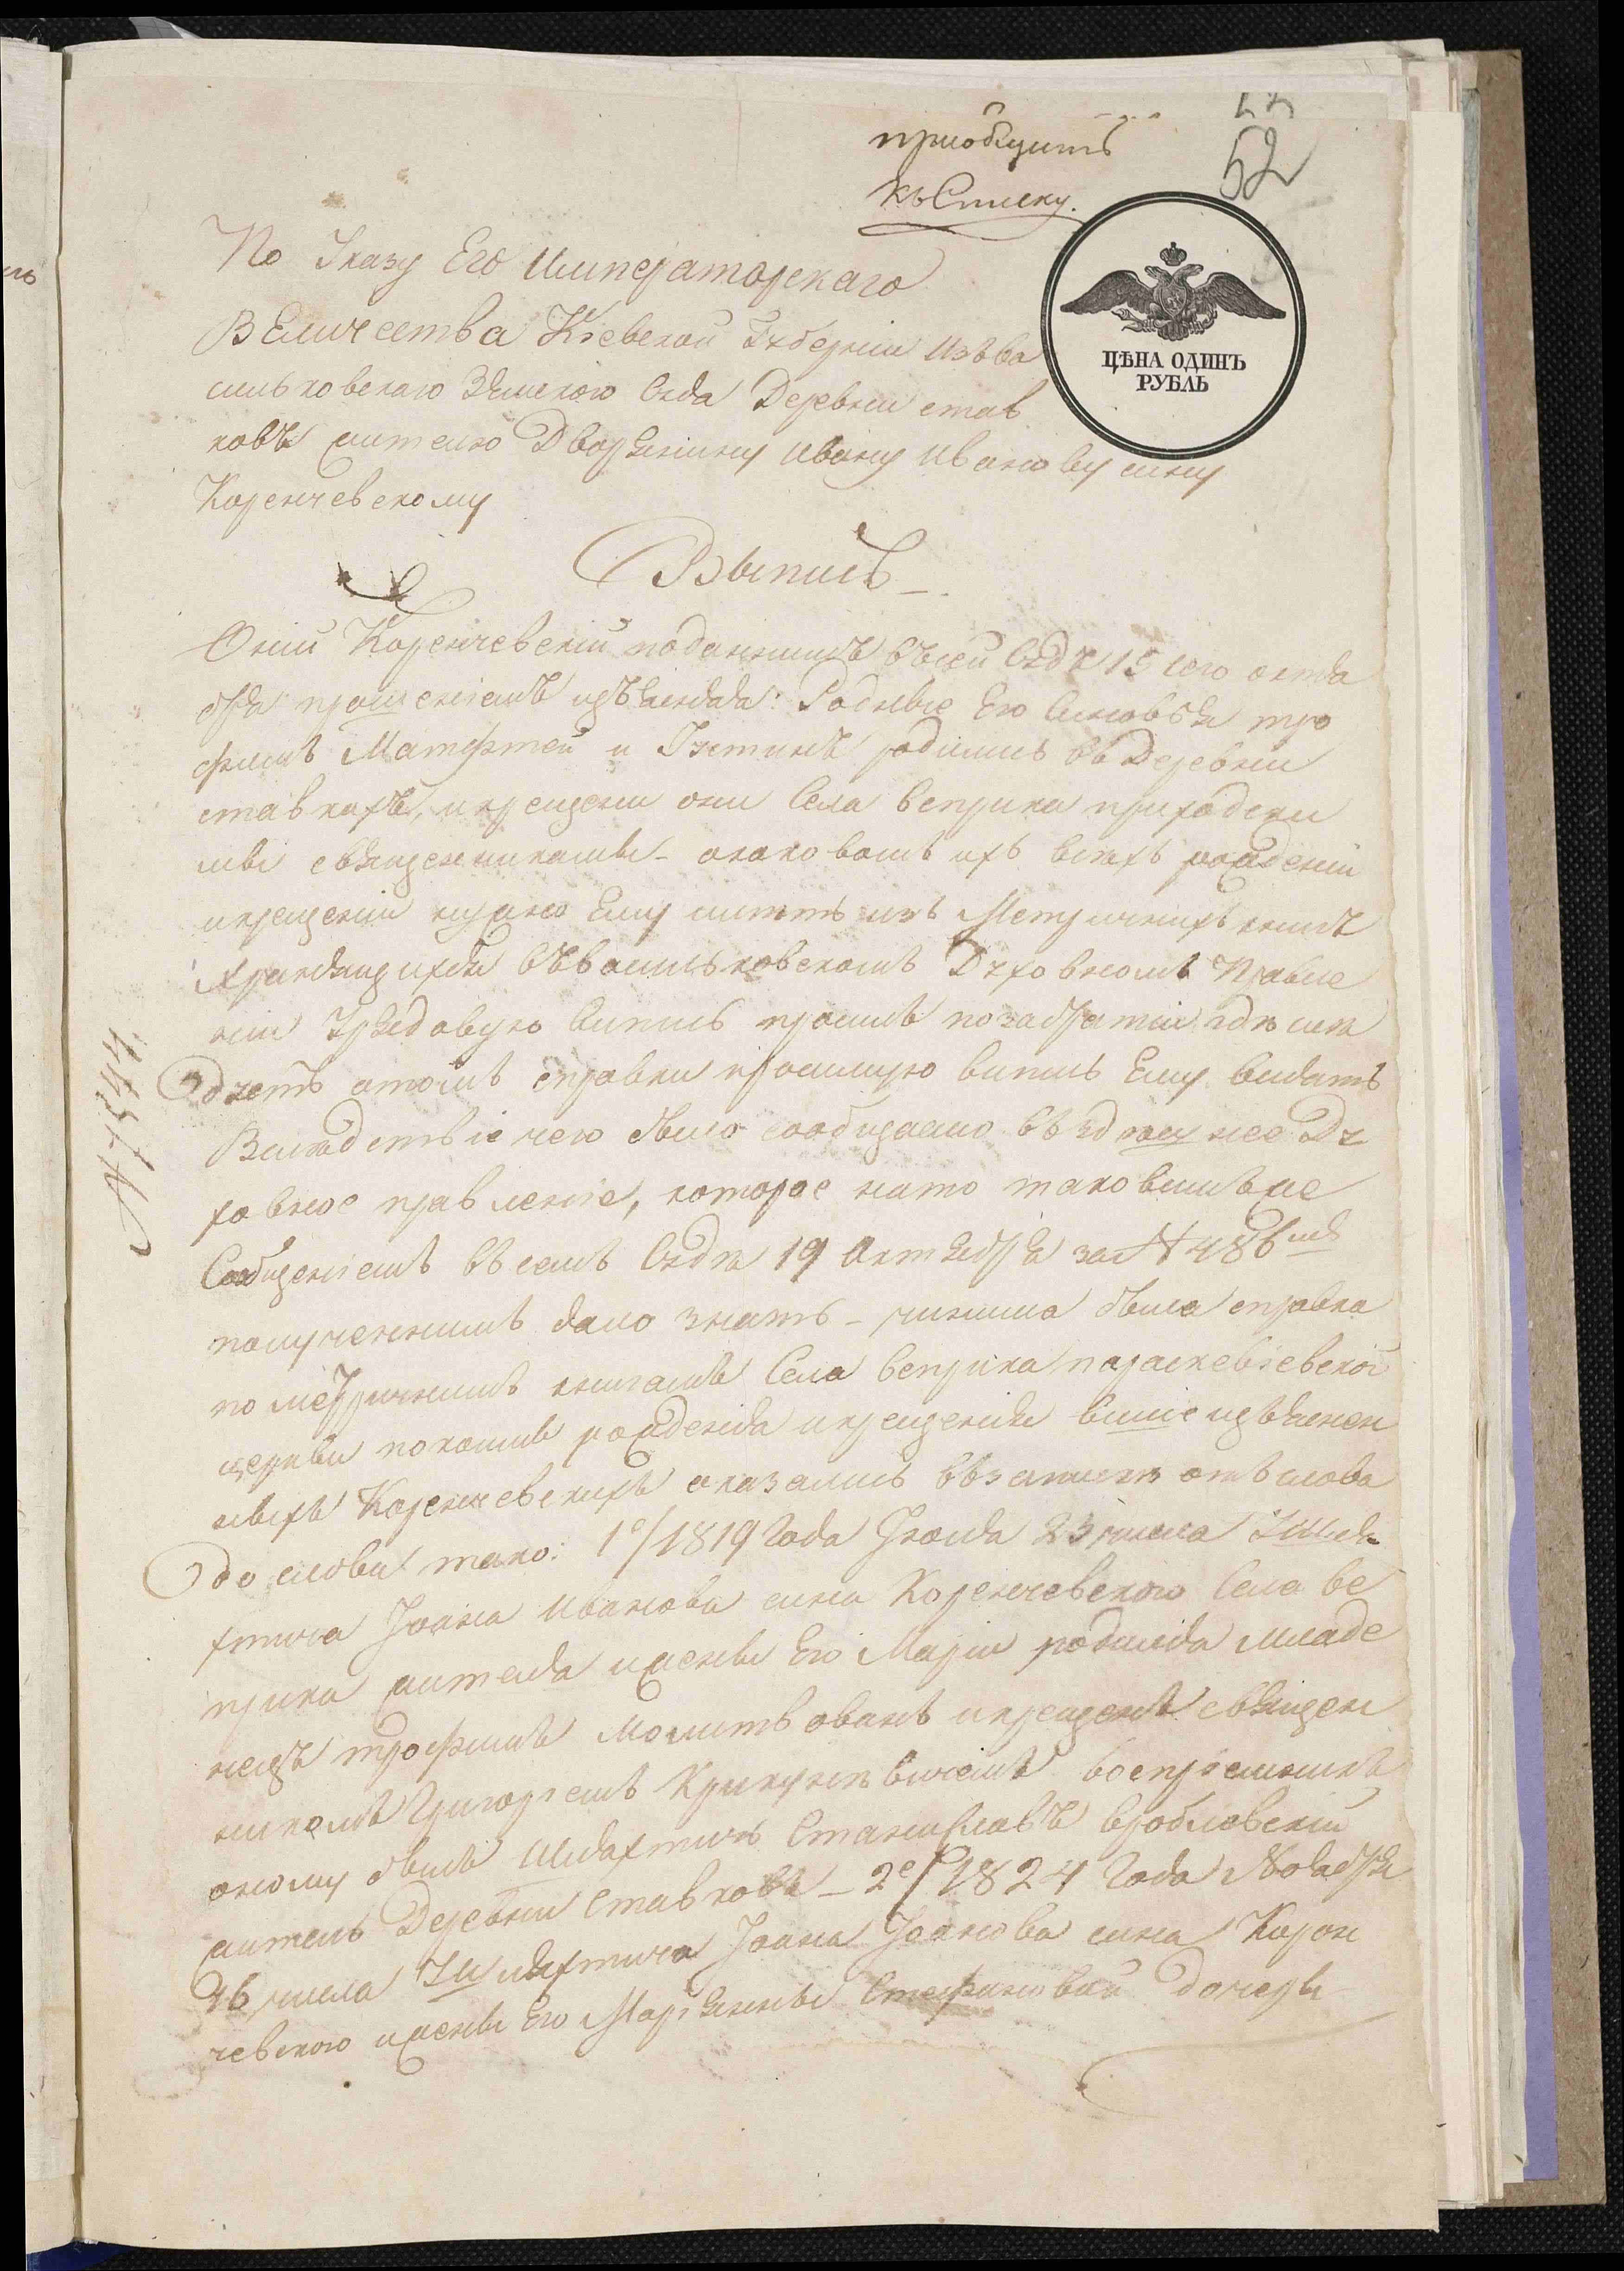 52
приобщить
къ Списку.
ЦѢНА ОДИНЪ
РУБЛЬ
По Указу Его Императорскаго
Величества Кіевской Губерніи Изъ Ва
сильковскаго Земского Суда Деревни став
ковъ жителю Дворянину Ивану Иванову сину
Коренчевскому
Выпись
Оній Коренчевскій поданнимъ въ сей Судъ 15 сего октя
бря прошеніемъ изъяснялъ: Родные Его Синовья тро
фимъ Матфтей и Густинъ родились въ Деревни
ставкахъ, и крещени они Села веприка приходски
ми священниками - о каковомъ ихъ всѣхъ рождении
и крещении нужно Ему имѣть изъ Метричнихъ книгъ
хранящихся въ васильковскомъ Духовномъ Правле
нии Урядовую випись просилъ по забратіи гдѣ слѣ
дуетъ о томъ справки просимую випись Ему видать
Вслѣдствіе чего было сообщаемо въ здешнее Ду
ховное правленіе, которое на то таковимъ же
Сообщеніемъ въ семъ Судѣ 19 Октября за № 486мъ
полученнимъ дало знать - чинима была справка
по метричнимъ книгамъ Села веприка параскевіевской
церкви по коимъ рожденія и крещенія вишеизъяснен
ныхъ Коренчевскихъ оказались въ записѣ отъ слова
до слова тако: 1е/ 1819 Года Іюля 23 числа У Шля
хтича Іоана Иванова сина Коренчевского Села ве
прика жителя и жены Его Маріи родился младе
нецъ трофимъ молитвованъ и крещенъ священ
никомъ Григоріемъ воспріемникъ
оному былъ шляхтичъ Станиславъ вробловскій
житель Деревни Ставковъ - 2е/ 1824 Года Ноября
16 числа У Шляхтича Іоана Іоанова сина Корен
чевского и жены Его Маріянны Стефановой дочери